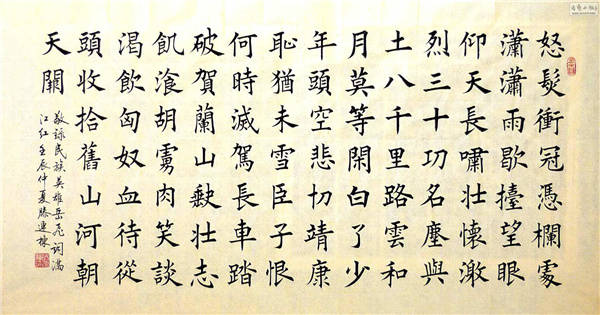 怒髮衝冠憑欄處
瀟瀟雨歇擡望眼
仰天長嘯壯懷激
烈三十功名塵與
土八千里路雲和
月莫等閑白了少
年頭空悲切靖康
恥猶未雪臣子恨
何時滅駕長車踏
破賀蘭山缺壯志
飢湌胡虜肉笑談
渴飲匈奴血待從
頭收拾舊山河朝
天闕
敬錄民族英雄岳飛詞滿
江紅壬辰仲夏滕連棟